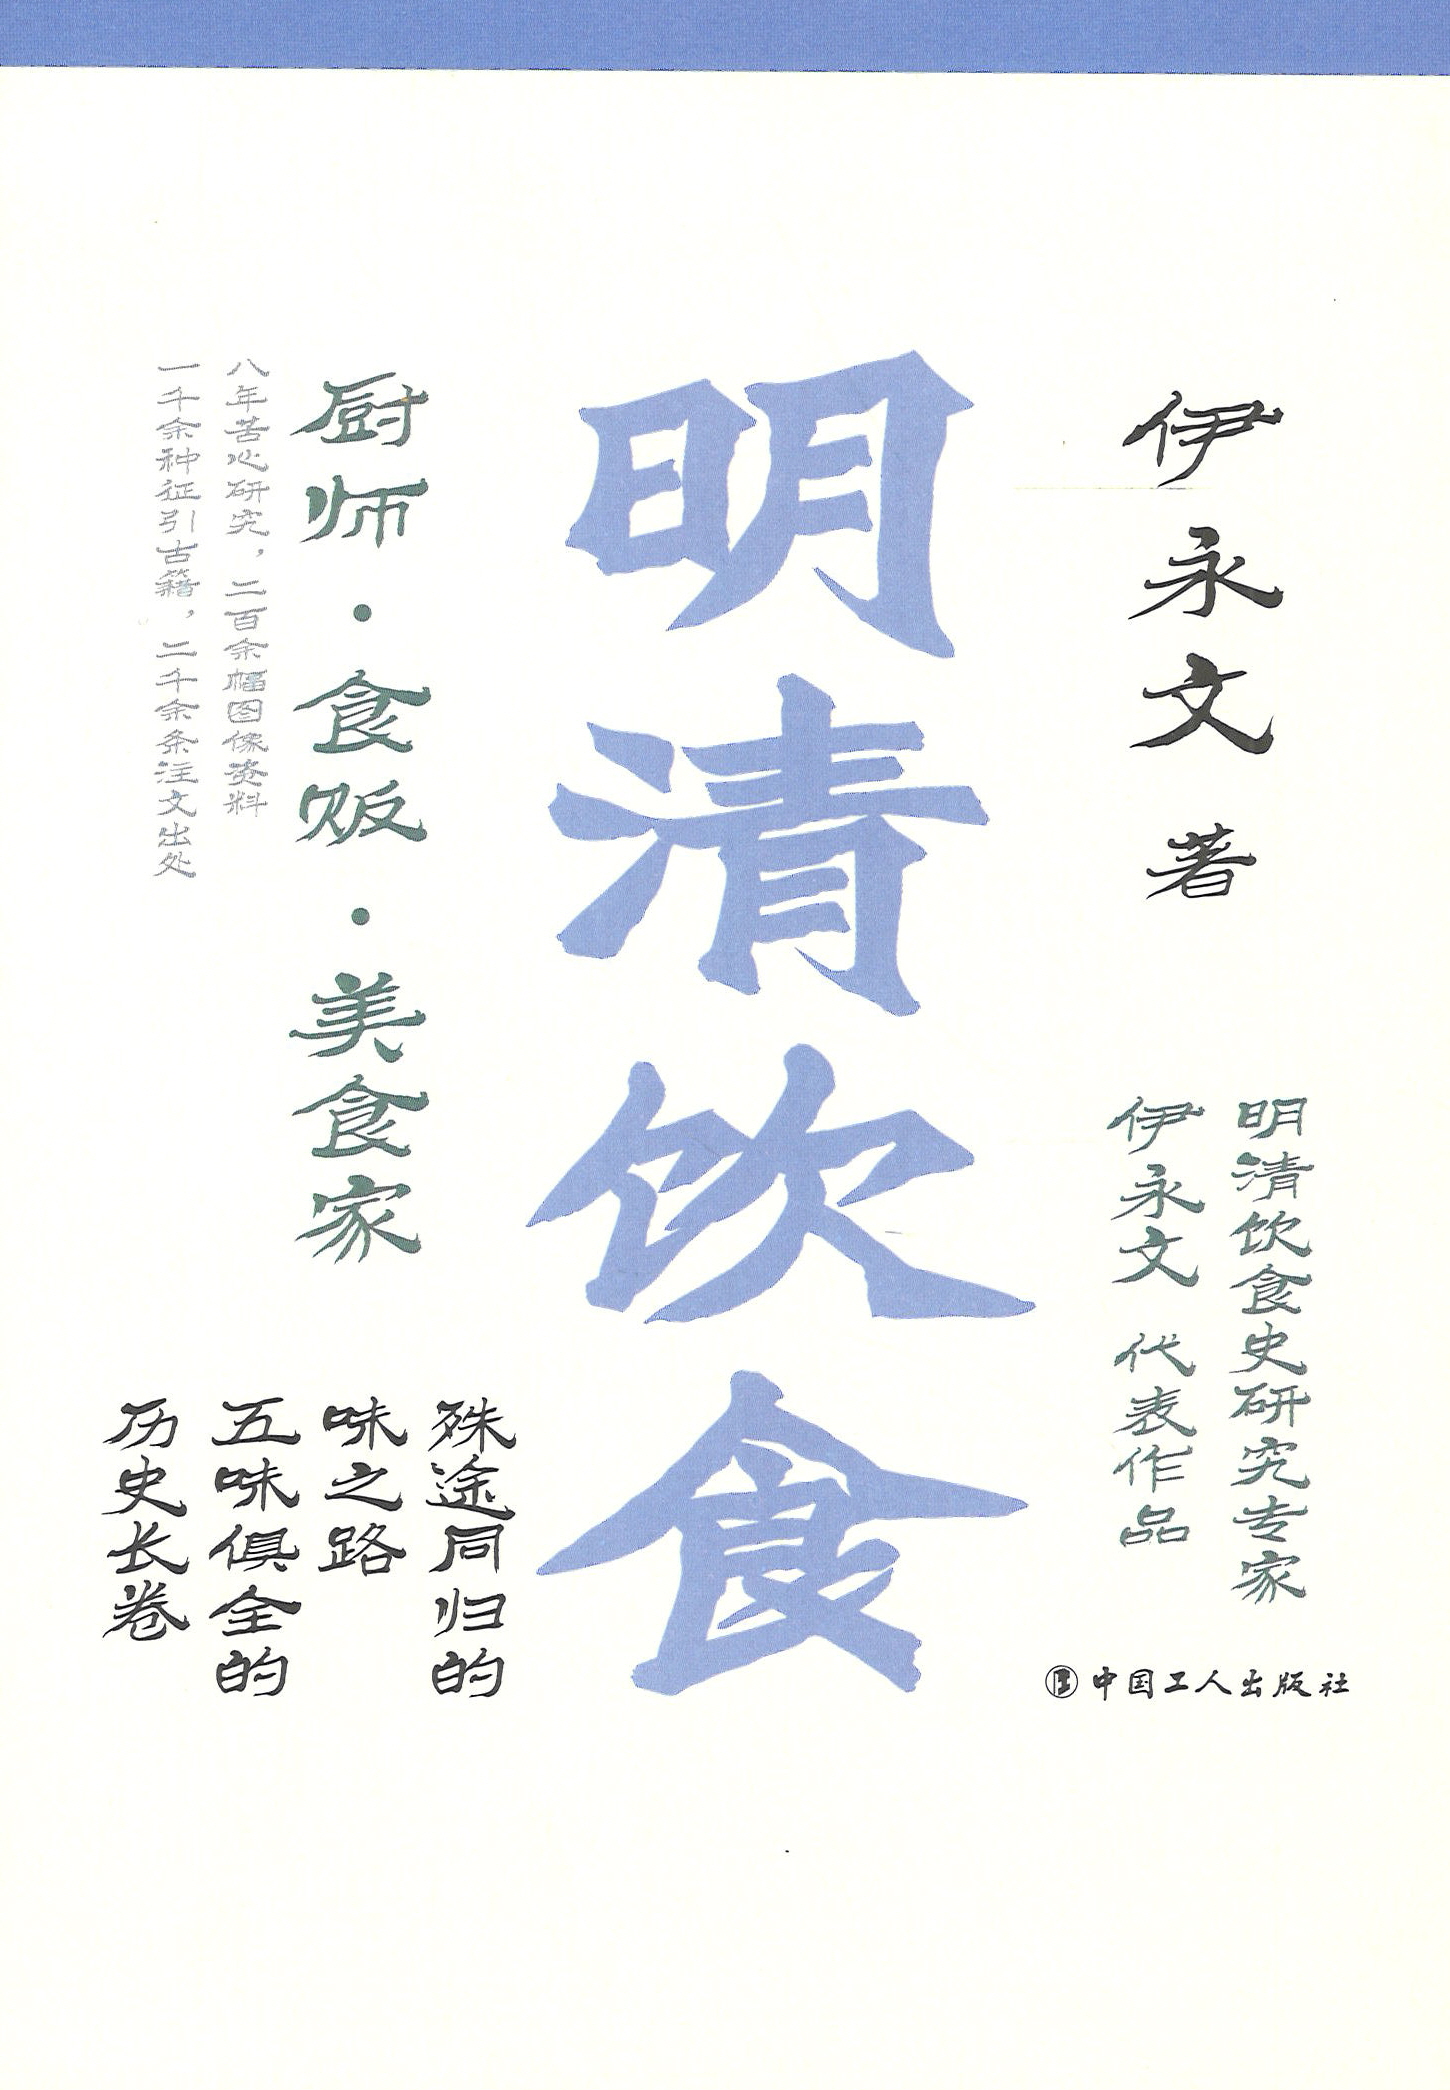 伊永文 著
明清饮食史研究专家
伊永文 代表作品
中国工人出版社
明清饮食
厨师·食贩·美食家
八年苦心研究，二百余幅图像资料
一千余种征引古籍，二千余条注文出处
殊途同归的
味之路
五味俱全的
历史长卷